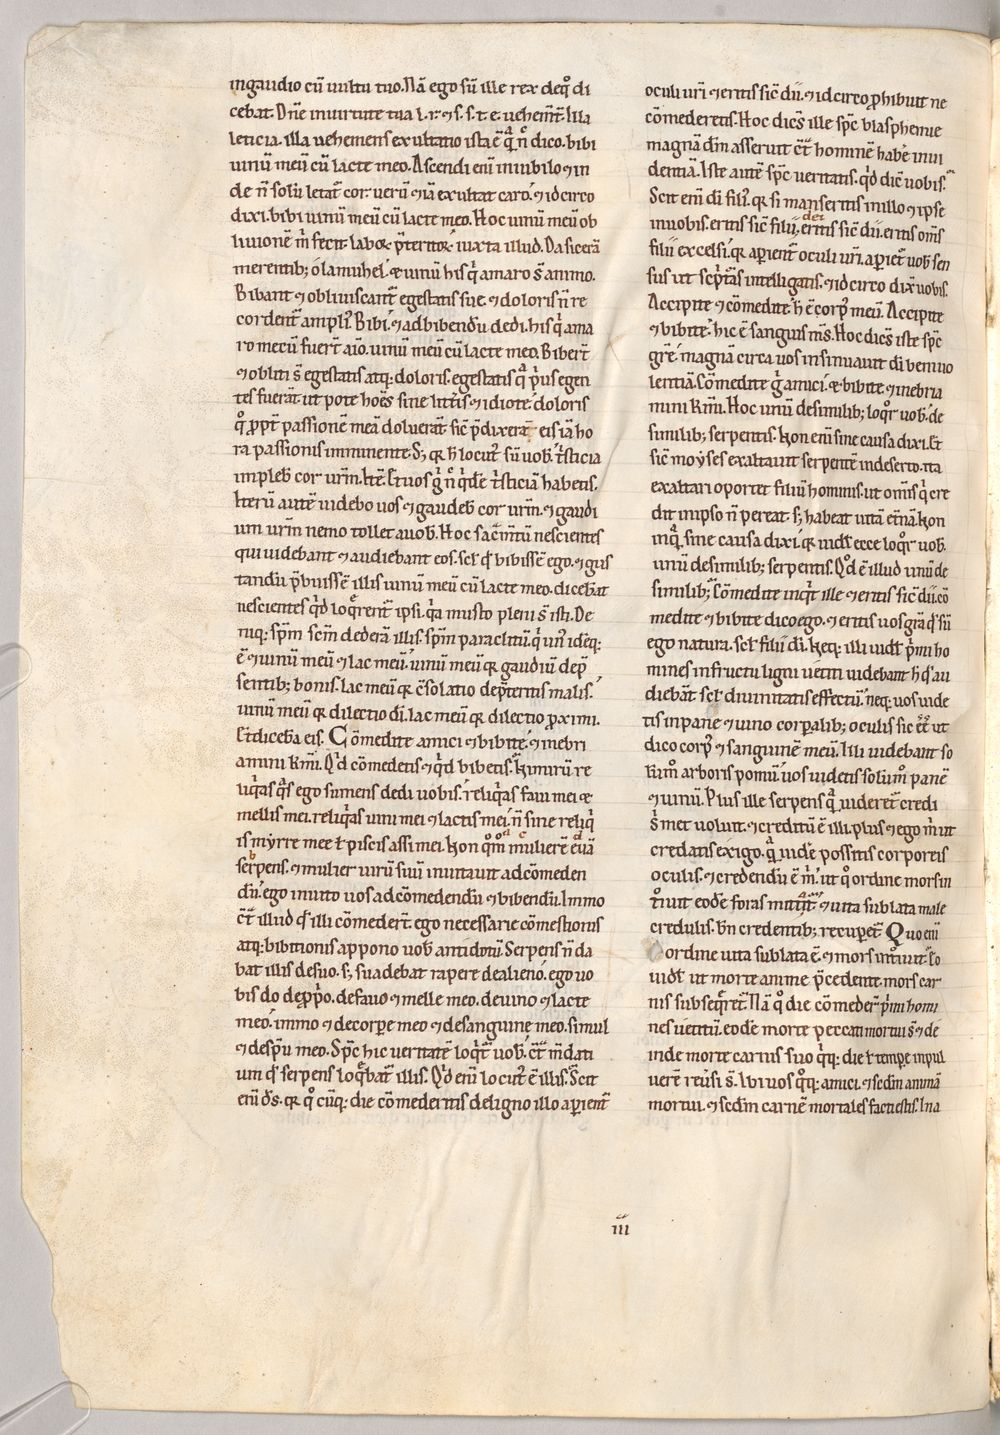 in gaudio cū uultu tuo. Nā ego sū ille rex de q̊ di
cebat. Dn̄e in uirtute tua l. r. ⁊ s. s. t. e. uehem̄t̄. Illa
leticia. illa uehemens exultatio ista ē qͣ n̄ dico. bibi
uinū meū cū lacte meo. Ascendi eni in iubilo ⁊ in
de n̄ solū letat᷑ cor. uerū ⁊iā exultat caro. ⁊ idcirco
dixi. bibi uinū meū cū lacte meo. Hoc uinū meū ob
liuionē m̄ fecit. labor p̄teritor᷑ iuxta illud. Da sicerā
merentib; o lamuhel. ⁊ uinū his qͥ amaro s̄ animo.
Bibant ⁊ obliuiscant᷑ egestatis sue. ⁊ doloris n̄ re
cordent᷑ amplꝰ. Bibi. ⁊ ad bibendū dedi. his qͥ ama
ro mecū fuer̄t aīo. uinū meū cū lacte meo. Biber̄t
⁊ obliti s̄ egestatis atq; doloris. egestatis qͣ pͥus egen
tes fuerāt. ut pote hoēs sine litt̄is ⁊ idiote. doloris
q̊ ꝓpt̄ passionē meā doluerāt sic̄ p̄dixerā eis iā ho
ra passionis imminente. S; qꝛ h̄ locut᷒ sū uob̄. t̄sticia
impleb̄ cor ur̄m. Itē. Et uos g̊ n̊ qͥdē t̄sticiā habetis.
Iterū autē uidebo uos ⁊ gaudeb̄ cor ur̄m. ⁊ gaudi
um ur̄m nemo tollet a uob̄. Hoc sac̄m̄tū nescientes
qui uidebant ⁊ audiebant eos. scł qd̕ bibissē ego. ⁊ gus
tandū p̄buissē illis uinū meū cū lacte meo. dicebāt
nescientes qͥd loq̄rent᷑ ipsi. qͥa musto pleni s̄ isti. De
niq; sp̄m sc̄m dederā illis. sp̄m paraclitū. qͥ un᷒ idēq;
ē ⁊ uinū meū ⁊ lac meū. uinū meū qꝛ gaudiū de p̄
sentib; bonis. lac meū qꝛ c̄solatio de p̄teritis malis.
uinū meū qꝛ dilectio dī. lac meū qꝛ dilectio ꝓximi.
Et dicebā eis. Cōmedite amici ⁊ bibite. ⁊ inebri
amini k̄mi. Qͥd cōmedetis ⁊ qͥd bibetis. Nimirū re
liqͥas qͣs ego sumens dedi uobis. reliqͥas faui mei ⁊
mellis mei. reliqͥas uini mei ⁊ lactis mei. n̄ sine reliqͥ
is myrre mee ł piscis assi mei. Non q̊m̊ muliere euā
serpens. ⁊ mulier uirū suū inuitauit ad cōmeden
dū. ego inuito uos ad cōmedendū ⁊ bibendū. Immo
c̄t̄ illud qd̕ illi cōmeder̄t. ego necessarie cōmestionis
atq; bibitionis appono uob̄ antidotū. Serpens n̄ da
bat illis de suo. s; suadebat rapere de alieno. ego uo
bis do de ꝓp̄o. de fauo ⁊ melle meo. de uino ⁊ lacte
meo. immo ⁊ de corpe meo ⁊ de sanguine meo. simul
⁊ de sp̄u meo. Sp̄c hic ueritatē loqͥt᷑ uob̄. c̄t̄ m̄dati
um qd̕ serpens loq̄bat᷑ illis. Qͥd eni locut᷒ ē illis. Scit
eni d̄s. qꝛ q̊cūq; die cōmederitis de ligno illo apient᷑
oculi ur̄i ⁊ eritis sic̄ dii. ⁊ idcirco ꝓhibuit ne
cōmederetis. Hoc dicēs ille sp̄c blasphemie
magnā dm̄ asseruit c̄t̄ hominē habe᷑ inui
dentiā. Iste autē sp̄c ueritatis. qͥd dic̄ uobis.
Scit eni di filiꝰ. qꝛ si manseritis in illo ⁊ ipse
in uobis. eritis sic̄ filii dei. eritis sic̄ dii. eritis om̄s
filii excelsi. qꝛ apient᷑ oculi ur̄i. apiet᷑ uob̄ sen
sus ut sc̄pt̄as intelligatis. ⁊ idcirco dix̄ uobis.
Accipite ⁊ cōmedite. h̄ ē corpꝰ meū. Accipite
⁊ bibite. hic ē sanguis m̄s. Hoc dicēs iste sp̄c
gr̄e. magnā circa uos insinuauit di beniuo
lentiā. Cōmedite g̊ amici. ⁊ bibite. ⁊ inebria
mini k̄mi. Hoc unū de similib; loqͦr uob̄. de
similib; serpentis. Non eni sine causa dixi. Et
sic̄ moyses exaltauit serpentē in deserto. ita
exaltari oportet filiū hominis. ut om̄is qͥ cre
dit in ipso n̄ pereat. s; habeat uitā et̄nā. Non
inqͣ sine causa dixi. qꝛ uidł ecce loqͦr uob̄.
unū de similib; serpentis. Qͦd ē illud unū de
similib; Cōmedite inqͥt ille ⁊ eritis sic̄ dii. cō
medite ⁊ bibite dico ego. ⁊ eritis uos gr̄a qd̕ sū
ego natura. scł filii dī. Neq; illi uidł pͥmi ho
mines in fructu ligni uetiti uidebant h̄ qd̕ au
diebāt scł diuinitatis effectū. neq; uos uide
tis in pane ⁊ uino corpalib; oculis sic ēē ut
dico corpꝰ ⁊ sanguinē meū. Illi uidebant so
lum̊ arboris pomū. uos uidetis solum̊ panē
⁊ uinū. Plus ille serpens qͣ uideret᷑ credi
s̄ met uoluit. ⁊ creditū ē illi. plus ⁊ ego m̄ ut
credatis exigo. qͣ uide᷑ possitis corporeis
oculis. ⁊ credendū ē m̄. ut q̊ ordine mors in
t̊iuit eodē foras mittat᷑. ⁊ uita sublata male
credulis. bn̄ credentib; recupet᷑. Quo eni
ordine uita sublata ē. ⁊ mors int̊iuit. Eo
uidł ut morte anime p̄cedente. mors car
nis subseq̄ret᷑. Nā q̊ die cōmeder̄t pͥmi homi
nes uetitū. eodē morte peccati mortui s̄ ⁊ de
inde morte carnis suo qͥq; die ł tempe in pul
uerē reuˢsi s̄. Ibi uos q̊q; amici. ⁊ scdm animā
mortui. ⁊ scdm carnē mortales facti estis. In a
iii